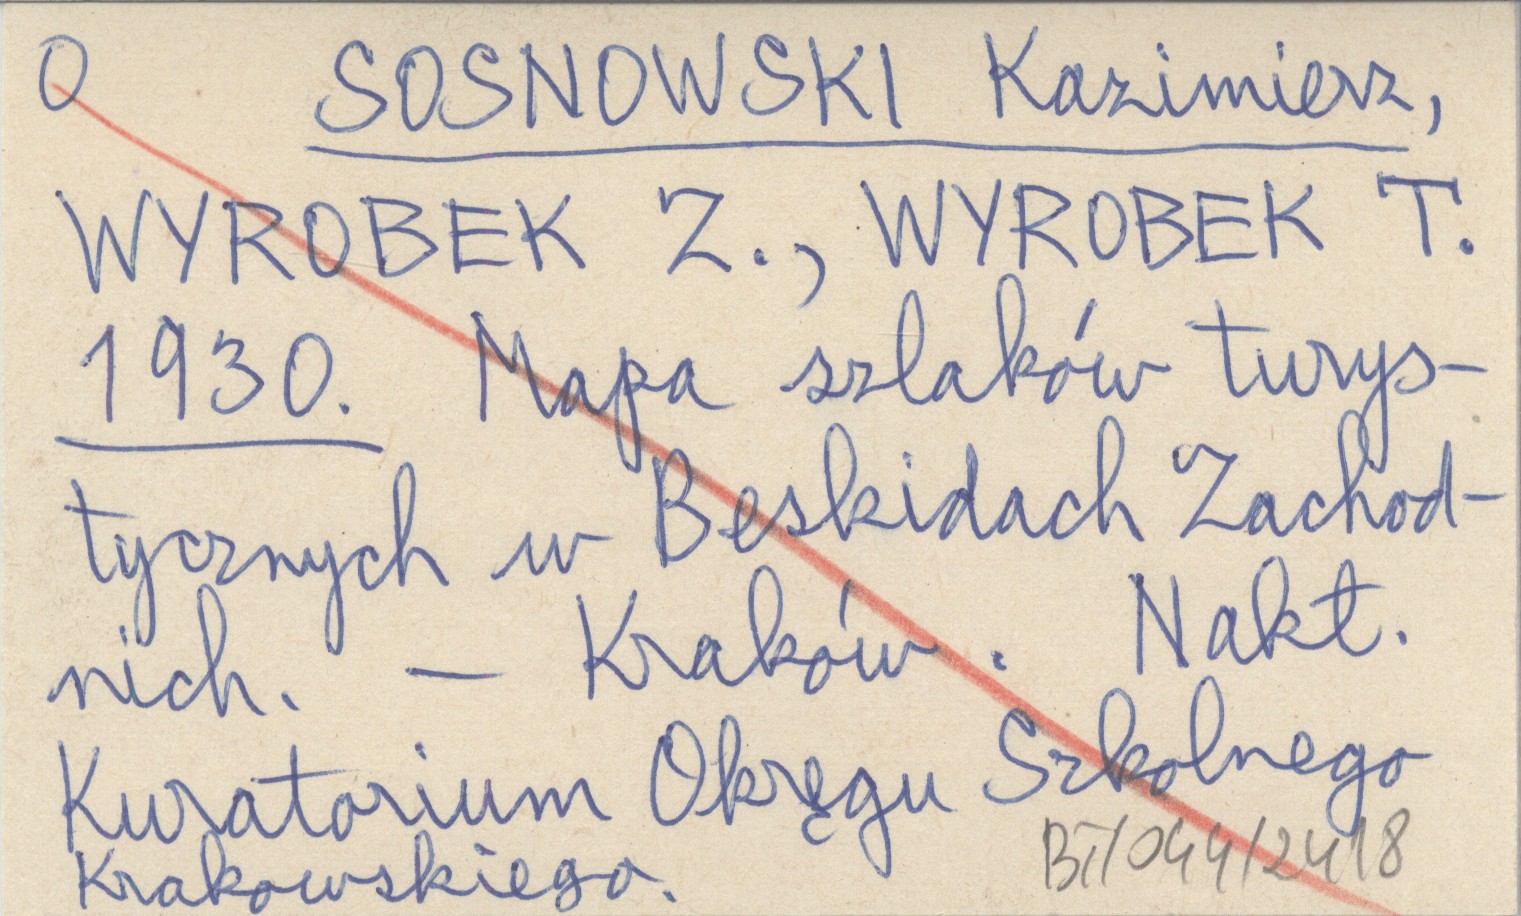 O SOSNOWSKI Kazimierz,
WYROBEK Z., WYROBEK T.
1930. Mapa szlaków turys-
tycznych w Beskidach Zachod-
nich. — Kraków. Nakł.
Kuratorium Okręgu Szkolnego
Krakowskiego.
BT/044/2418